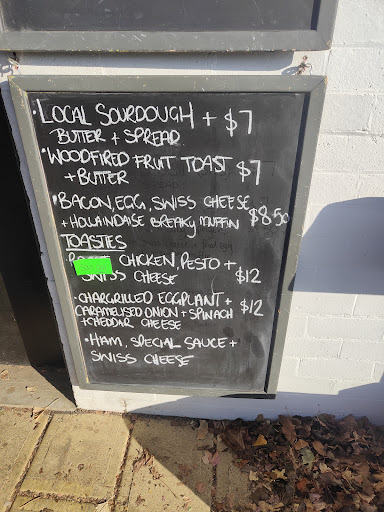 • LOCAL SOURDOUGH + $7
BUTTER + SPREAD
• WOODFIRED FRUIT TOAST $7
+ BUTTER
• BACON, EGG, SWISS CHEESE
+ HOLLAINDAISE BREAKY MUFFIN $8.50
TOASTIES
CHICKEN, PESTO +
SWISS CHEESE $12
• CHARGRILLED EGGPLANT +
CARAMELISED ONION + SPINACH $12
+ CHEDDAR CHEESE
• HAM, SPECIAL SAUCE +
SWISS CHEESE